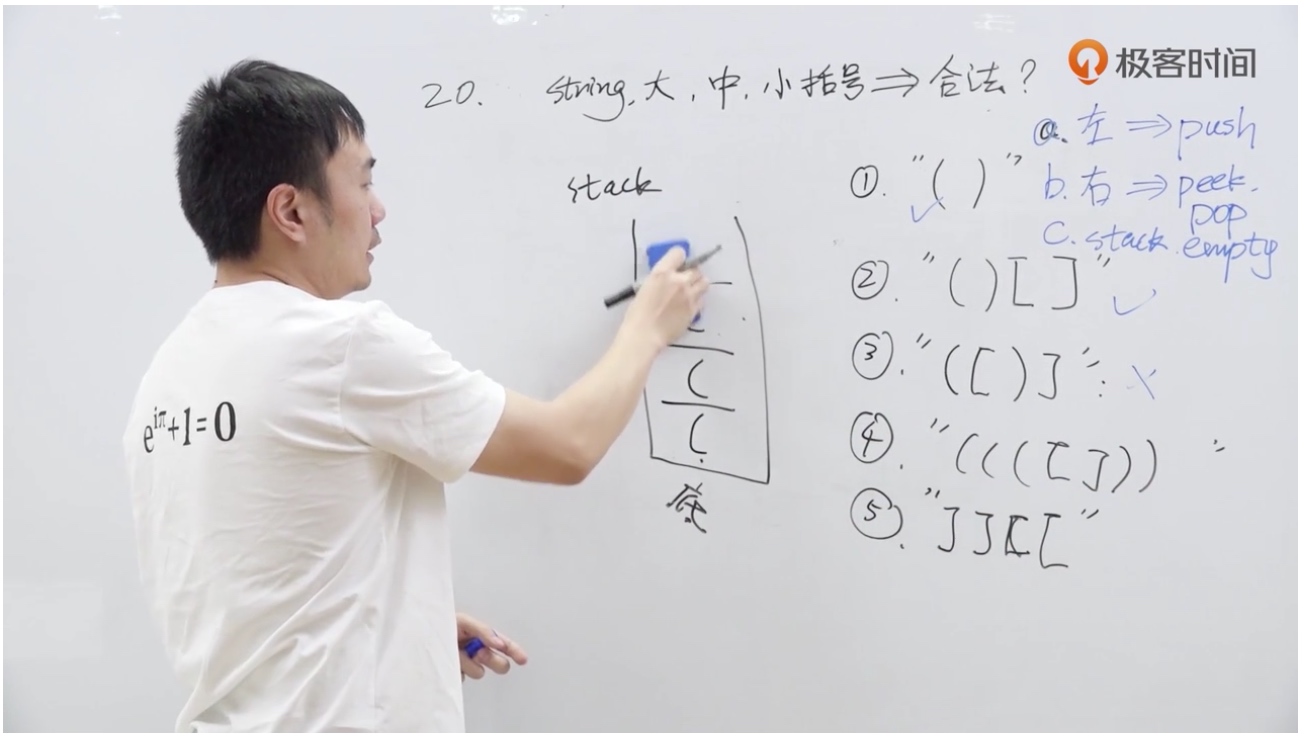 极客时间
20. string, 大, 中, 小括号 ⇒ 合法?
a. 左 ⇒ push
b. 右 ⇒ peek.
pop
c. stack empty
stack
(
(
底
①. "( )" ✓
②. "( ) [ ]" ✓
③. "( [ ) ]": ×
④. "( ( ( [ ] ) ) "
⑤. "] ] [ ["
e^{iπ}+1=0